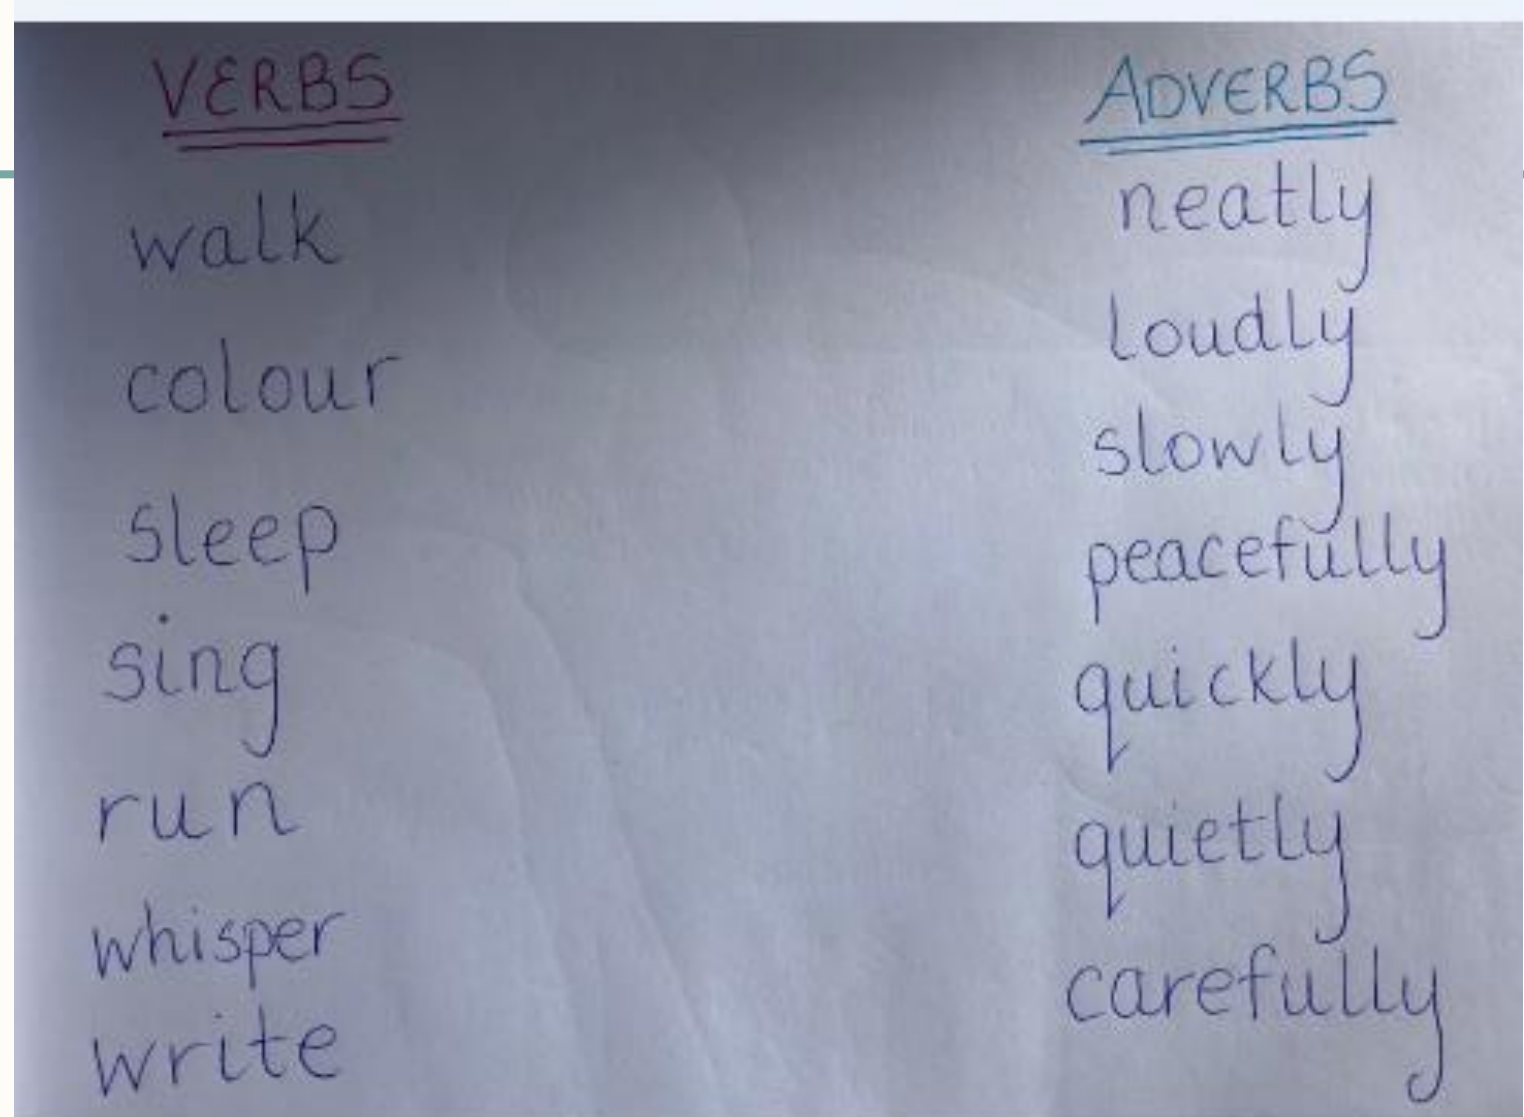 VERBS
walk
colour
sleep
sing
run
whisper
write
ADVERBS
neatly
loudly
slowly
peacefully
quickly
quietly
carefully